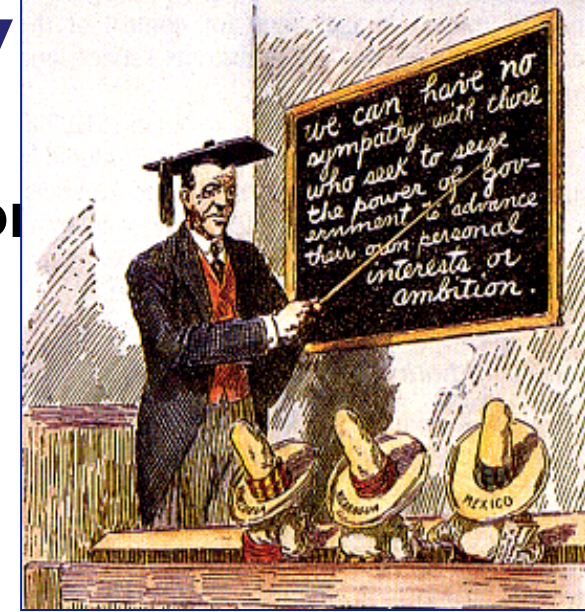 we can have no
sympathy with those
who seek to seize
the power of gov-
ernment to advance
their own personal
interests or
ambition.
MEXICO